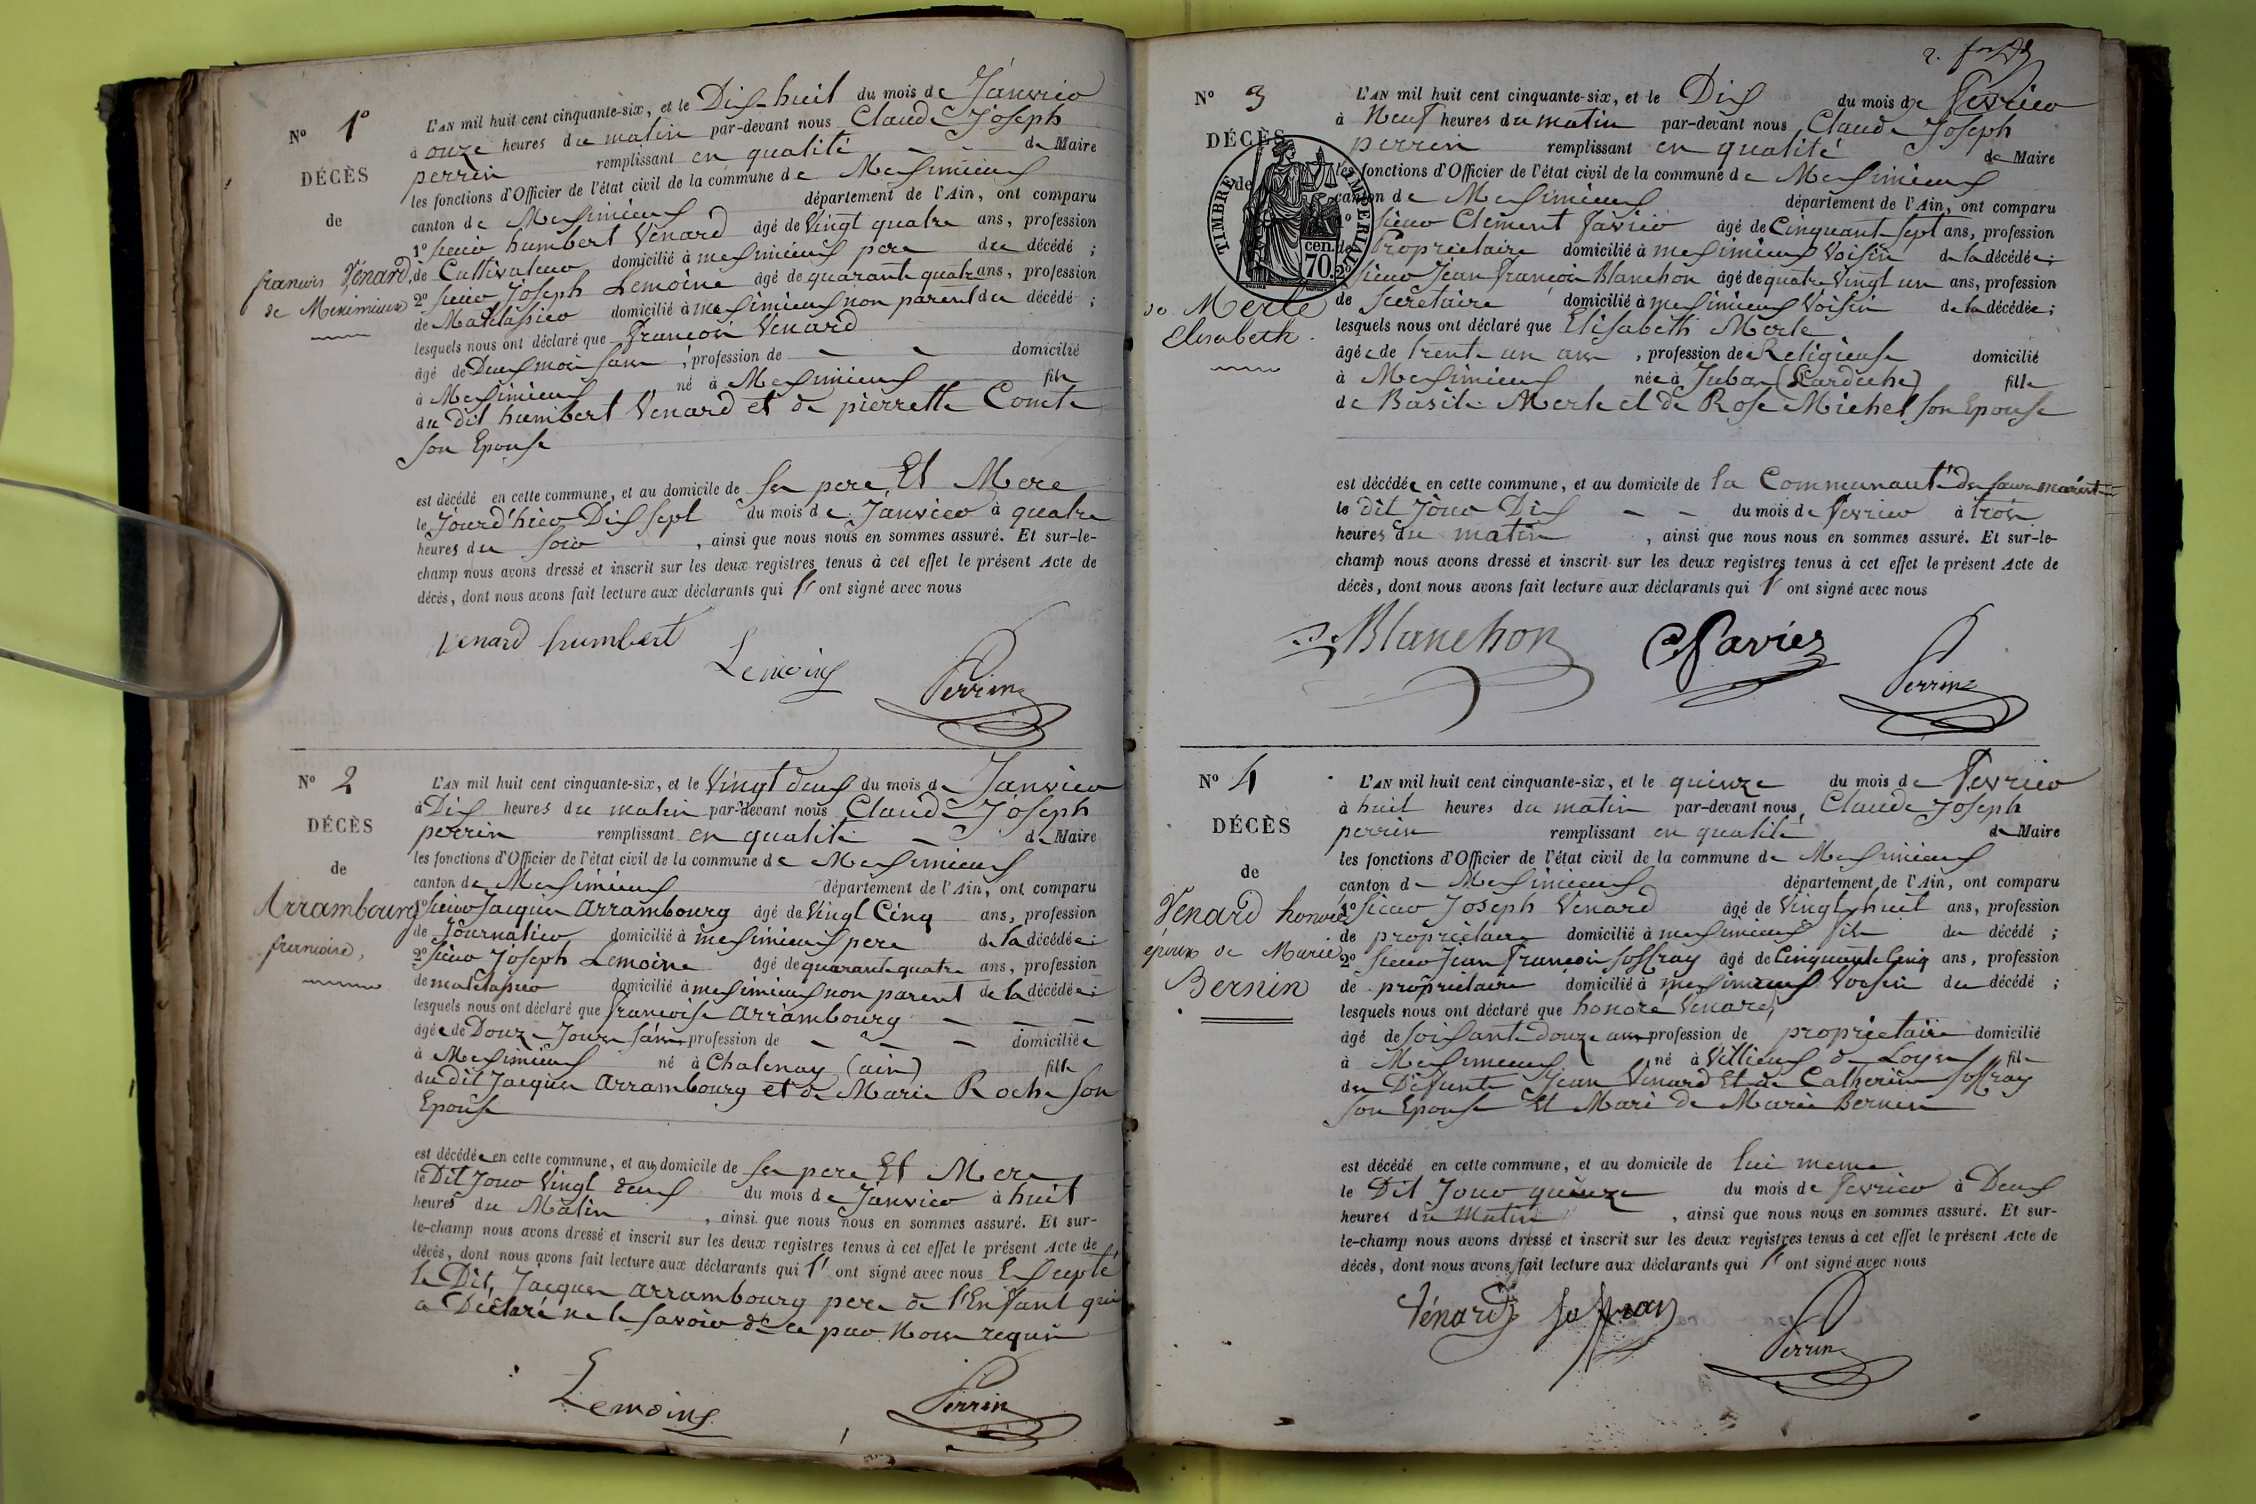 N° 1°
DÉCÈS
de
francois Vénard,
de Meximieux
L'AN mil huit cent cinquante-six, et le Dix-huit du mois de Janvier
à onze heures du matin par-devant nous Claude Joseph
perrin remplissant en qualité de Maire
les fonctions d'Officier de l'état civil de la commune de Meximieux
canton de Meximieux département de l'Ain, ont comparu
1° sieur humbert Venard âgé de Vingt quatre ans, profession
de Cultivateur domicilié à meximieux pere du décédé ;
2° sieur Joseph Lemoine âgé de quarante quatre ans, profession
de Matelassier domicilié à meximieux non parent du décédé ;
lesquels nous ont déclaré que françois Venard
âgé de Deux mois , profession de domicilié
à Meximieux né à Meximieux fils
du dit humbert Venard et de pierrette Comte
son Epouse
est décédé en cette commune, et au domicile de ses pere Et Mere
le Jourd'hier Dix sept du mois de Janvier à quatre
heures du soir , ainsi que nous nous en sommes assuré. Et sur-le-
champ nous avons dressé et inscrit sur les deux registres tenus à cet effet le présent Acte de
décès, dont nous avons fait lecture aux déclarants qui l' ont signé avec nous
Venard humbert
Lemoine
Perrin
N° 2
DÉCÈS
de
Arrambourg
francoise,
L'AN mil huit cent cinquante-six, et le Vingt deux du mois de Janvier
à Dix heures du matin par-devant nous Claude Joseph
perrin remplissant en qualité de Maire
les fonctions d'Officier de l'état civil de la commune de Meximieux
canton de Meximieux département de l'Ain, ont comparu
1° sieur Jacques Arrambourg âgé de Vingt Cinq ans, profession
de Journalier domicilié à meximieux pere de la décédée ;
2° sieur Joseph Lemoine âgé de quarante quatre ans, profession
de matelassier domicilié à meximieux non parent de la décédée ;
lesquels nous ont déclaré que francoise Arrambourg
âgée de Douze Jours , profession de domiciliée
à Meximieux né à Chatenay (ain) fille
du dit Jacques Arrambourg et de Marie Roche son
Epouse
est décédée en cette commune, et au domicile de ses pere Et Mere
le Dit Jour Vingt deux du mois de Janvier à huit
heures du Matin , ainsi que nous nous en sommes assuré. Et sur-
le-champ nous avons dressé et inscrit sur les deux registres tenus à cet effet le présent Acte de
décès, dont nous avons fait lecture aux déclarants qui l' ont signé avec nous Excepté
le Dit Jacques Arrambourg pere de l'Enfant qui
a Déclaré ne le savoir de ce par Nous requis
Lemoine
Perrin
2.
N° 3
DÉCÈS
de
de Merle
Elisabeth.
TIMBRE IMPERIAL
70 cen.
L'AN mil huit cent cinquante-six, et le Dix du mois de Fevrier
à Neuf heures du matin par-devant nous Claude Joseph
perrin remplissant en qualité de Maire
les fonctions d'Officier de l'état civil de la commune de Meximieux
canton de Meximieux département de l'Ain, ont comparu
1° sieur Clement favier âgé de Cinquante sept ans, profession
de Proprietaire domicilié à meximieux Voisin de la décédée ;
2° sieur Jean françois Blanchon âgé de quatre Vingt un ans, profession
de Secretaire domicilié à meximieux Voisin de la décédée ;
lesquels nous ont déclaré que Elisabeth Merle
âgée de trente un ans , profession de Religieuse domicilié
à Meximieux née à Juba (Lardeche) fille
de Basile Merle et de Rose Michel son Epouse
est décédée en cette commune, et au domicile de la Communauté des sœurs maristes
le dit Jour Dix du mois de Fevrier à trois
heures du matin , ainsi que nous nous en sommes assuré. Et sur-le-
champ nous avons dressé et inscrit sur les deux registres tenus à cet effet le présent Acte de
décès, dont nous avons fait lecture aux déclarants qui l' ont signé avec nous
Blanchon
C Favier
Perrin
N° 4
DÉCÈS
de
Venard honoré
époux de Marie
Bernin
L'AN mil huit cent cinquante-six, et le quinze du mois de Fevrier
à huit heures du matin par-devant nous Claude Joseph
perrin remplissant en qualité de Maire
les fonctions d'Officier de l'état civil de la commune de Meximieux
canton de Meximieux département de l'Ain, ont comparu
1° sieur Joseph Venard âgé de Vingt huit ans, profession
de proprietaire domicilié à meximieux fils du décédé ;
2° sieur Jean françois soffray âgé de Cinquante Cinq ans, profession
de proprietaire domicilié à meximieux Voisin du décédé ;
lesquels nous ont déclaré que honoré Venard
âgé de soixante douze ans profession de proprietaire domicilié
à Meximieux né à Villieux de Loyes fils
des Défunts Jean Venard Et de Catherine soffray
son Epouse Et Mari de Marie Bernin
est décédé en cette commune, et au domicile de lui meme
le Dit Jour quinze du mois de Fevrier à Deux
heures du Matin , ainsi que nous nous en sommes assuré. Et sur-
le-champ nous avons dressé et inscrit sur les deux registres tenus à cet effet le présent Acte de
décès, dont nous avons fait lecture aux déclarants qui l' ont signé avec nous
Vénard soffray
Perrin